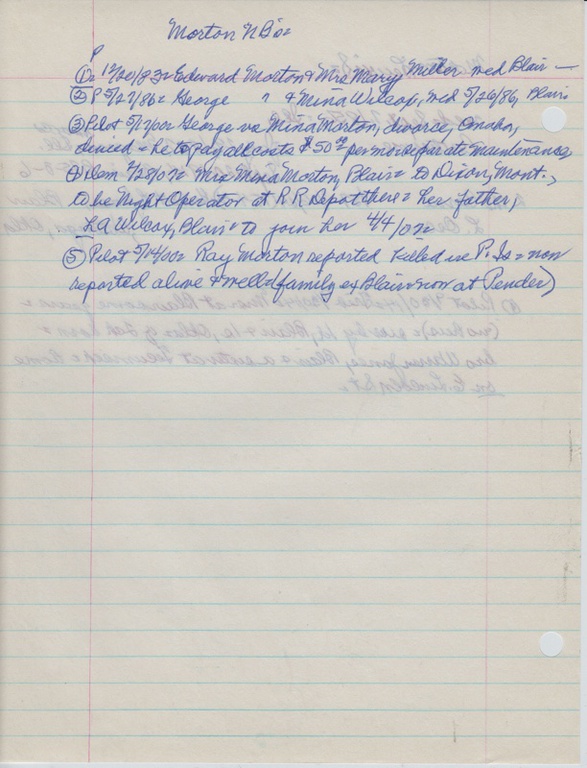 Morton NB's=
P
① = 12/20/83 = Edward Morton & Mrs Mary Miller wed Blair —
② P 5/27/86 = George " & Mina Wilcox, wed 5/26/86, Blair
③ Pilot 5/17/00 = George vs Mina Morton, divorce, Omaha,
denied = he to pay all costs & $50 00 per mo. separate maintenance,
④ Dem 7/28/07 = Mrs Mina Morton, Blair = to Dixon, Mont.,
to be Night Operator at R.R. Depot there = her father,
L.A. Wilcox, Blair = to join her 4/4/07 =
⑤ Pilot 5/14/00 = Ray Morton reported killed in P. Is = now
reported alive & well = (family ex Blair = now at Pender)